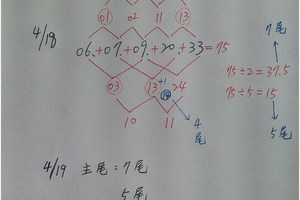 01 02 11 13
7尾
4/18
06.+07.+09.+20.+33=75
75÷2=37.5
75÷5=15
03 13 +1 14 24
10 11
4尾
5尾
4/19 主尾:7尾
5尾